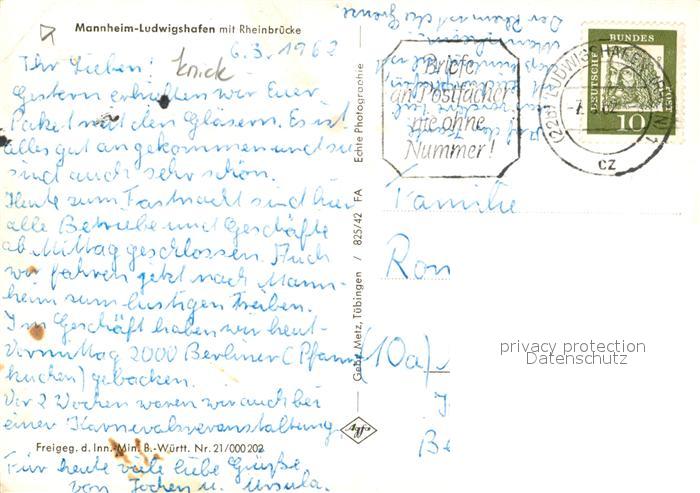 Mannheim-Ludwigshafen mit Rheinbrücke
6.3.1962
knick
Ihr Lieben!
Gestern erhielten wir Euer
Paket mit den Gläsern. Es ist
alles gut angekommen und sie
sind auch sehr schön.
Heute zum Fastnacht sind hier
alle Betriebe und Geschäfte
ab Mittag geschlossen. Auch
wir fahren jetzt nach Mann-
heim zum lustigen Treiben.
Im Geschäft haben wir heut-
Vormittag 2000 Berliner (Pfann
kuchen) gebacken.
Vor 2 Wochen waren wir auch bei
einer Karnevalsveranstaltung.
Freigeg. d. Inn.-Min. B.-Württ. Nr. 21/000202
Für heute viele liebe Grüße
von Jochen u. Ursula.
Gebr. Metz, Tübingen / 825/42 FA Echte Photographie
Agfa
Der Rhein ist die Grenze
Briefe
an Postfächer
nie ohne
Nummer!
LUDWIGSHAFEN
CZ
DEUTSCHE
BUNDES
10
Familie
Ron
(10a)
J
Be
privacy protection
Datenschutz